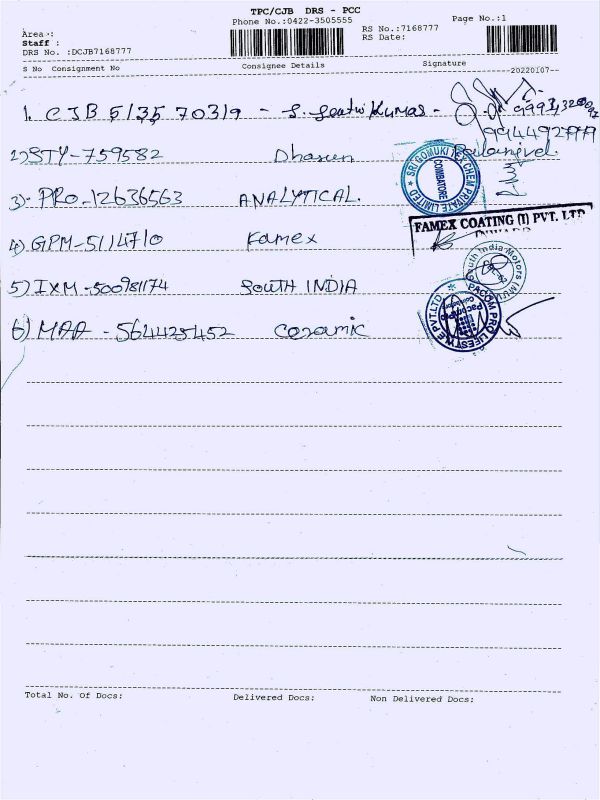 TPC/CJB DRS - PCC
Phone No.:0422-3505555
Page No.:1
Area :
RS No.:7168777
Staff :
RS Date:
DRS No. :DCJB7168777
S No Consignment No Consignee Details Signature
20220107
1. CJB 5135 70319 - S. Kumar -
9944927777
2) STY-759582 Dharun Palanivel
SRI GOMUKI TEX CHEM PRIVATE LIMITED
COIMBATORE
3). PRO-12636563 ANALYTICAL.
FAMEX COATING (I) PVT. LTD
INWARD
4) GPM-5114710 Famex
South India Motors
5) IXM-500981174 SOUTH INDIA
PACOM PRO LIFESTYLE PVT LTD
6) MAA - 564425452 Ceramic
Total No. Of Docs: Delivered Docs: Non Delivered Docs: